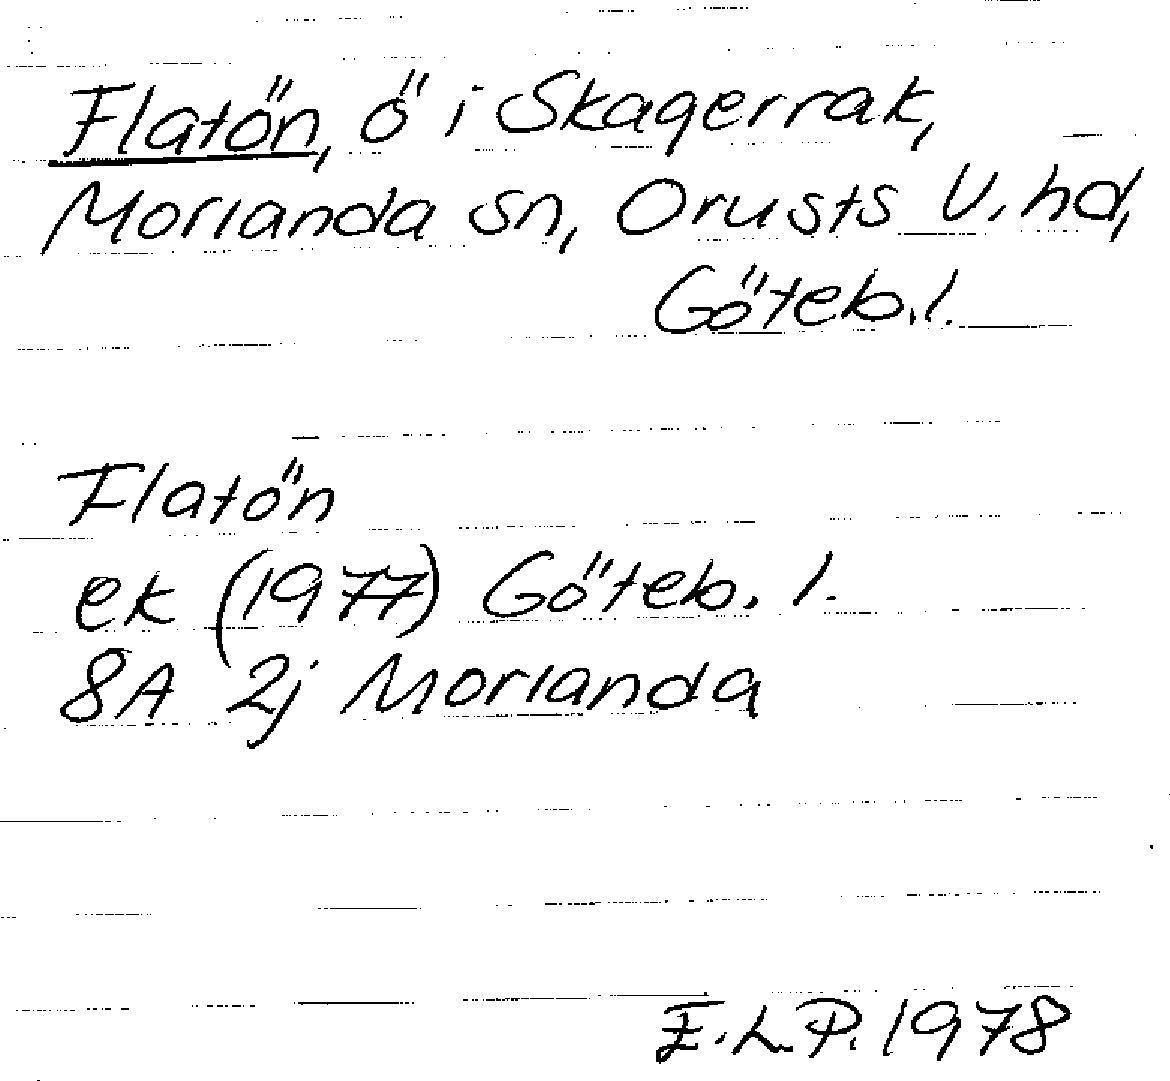 Flatön, ö i Skagerrak,
Morlanda sn, Orusts V. hd,
Göteb. l.
Flatön
ek (1977) Göteb. l.
8A 2j Morlanda
E.L.P. 1978